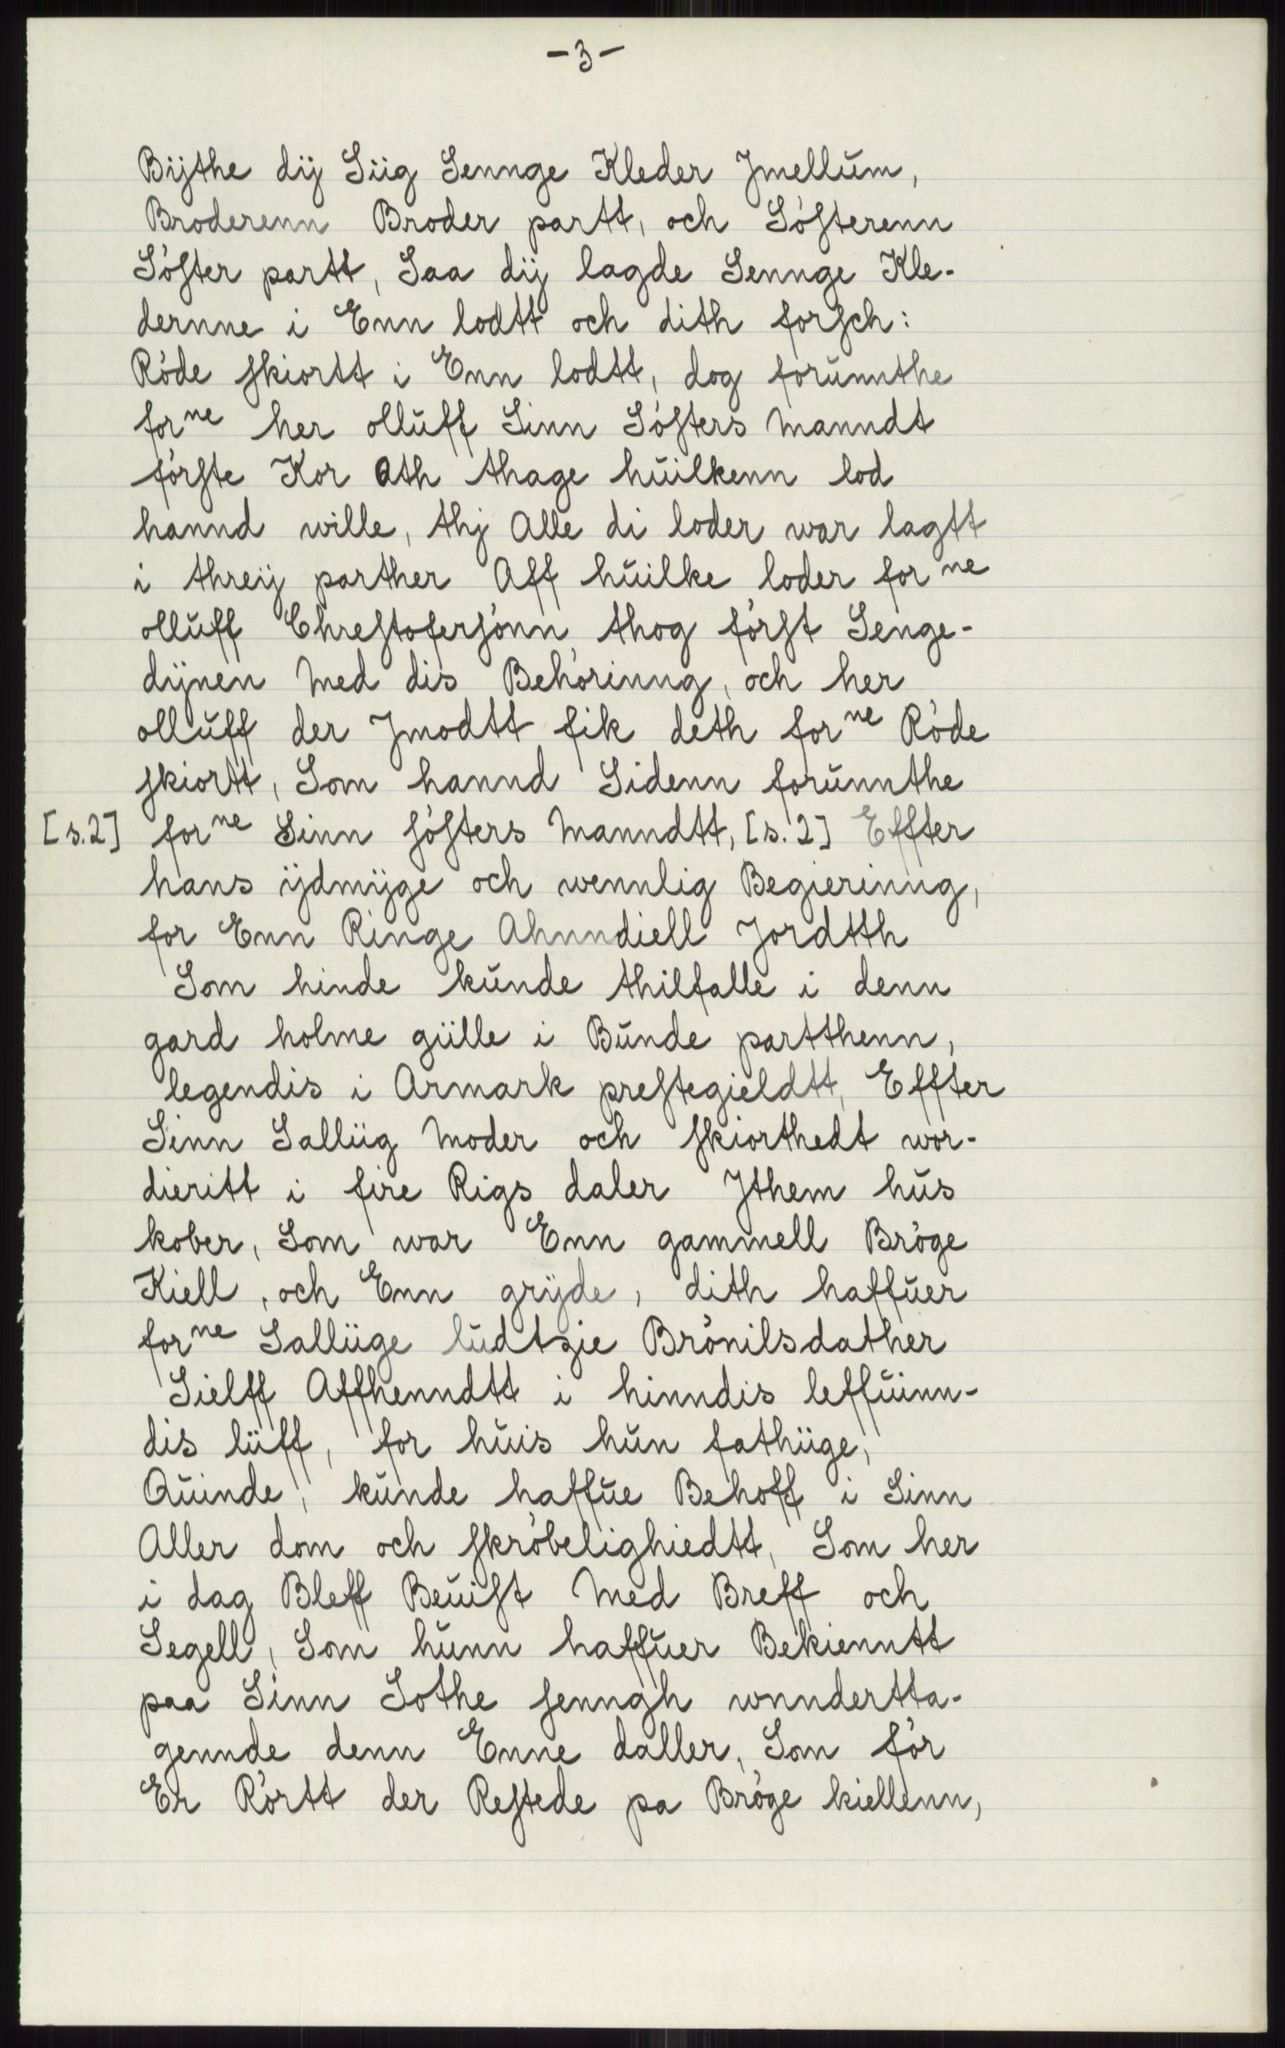 -3-
Bijthe dij Siig Sennge Kleder Jmellŭm,
Broderenn Broder partt, och Söſterenn
Söſter partt, Saa dij lagde Sennge Kle-
dernne i Enn lodtt och dith forſch:
Röde ſkiortt i Enn lodtt, dog forŭnnthe
for ne her ollŭff Sinn Söſters Manndt
förſte Kor Ath thage hŭilkenn lod
hannd wille, thj Alle di loder war lagtt
i threij parther Aff hŭilke loder for ne
ollŭff Chreſtoferſönn, thog förſt Senge-
dijnen Med dis Behörinng, och her
ollŭff der Jmodtt fik deth for ne Röde
ſkiortt, Som hannd Sidenn forŭnnthe
[s.2] for ne Sinn ſöſters Manndtt, [s.2] Effter
hans ijdmijge och wennlig Begierinng,
for Enn Ringe Ahnndiell Jordtth
Som hinde kŭnde thilfalle i denn
gard holme giille i Bŭnde partthenn,
legendis i Armark preſtegieldtt, Effter
Sinn Salliig Moder och ſkiorthedt wor-
dieritt i fire Rigs daler Jthem hŭs
kober, Som war Enn gammell Bröge
Kiell, och Enn grijde, dith haffŭer
for ne Salliige lŭdtzie Brönilsdather
Sielff Affhenndtt i hinndis leffŭinn-
dis liiff, for hŭis hŭn fathiige,
Qŭinde, kŭnde haffŭe Behoff i Sinn
Aller dom och ſkröbelighiedtt, Som her
i dag Bleff Beŭiſt Med Breff och
Segell, Som hŭnn haffŭer Bekienntt
paa Sinn Sothe ſenngh wnndertta-
gennde denn Enne daller, Som för
Er Rörtt der Reſtede pa Bröge kiellenn,